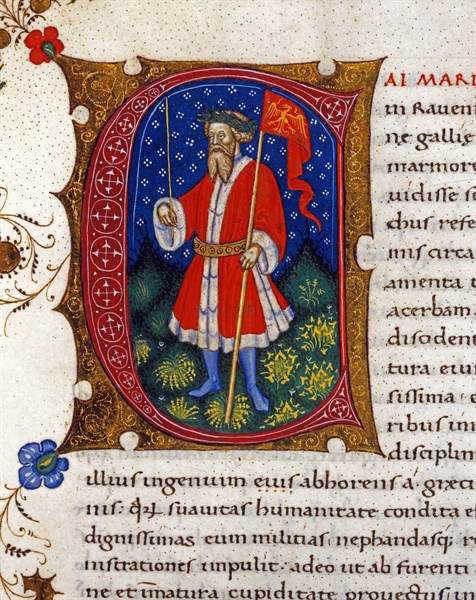 AI MARI
in Raven
ne gallie
marmore
uidisse s
chus refe
mis circa
amenta t
acerbam
disodent
tura eiu
sissima · e
ribus in
disciplin
illius ingenium eius abhorens a græci
nis: suauitas humanitate condita e
dignissimas cum militias nephandasq; r
instrationes impulit · adeo ut ab furenti
ne et imatura cupiditate prouectus in